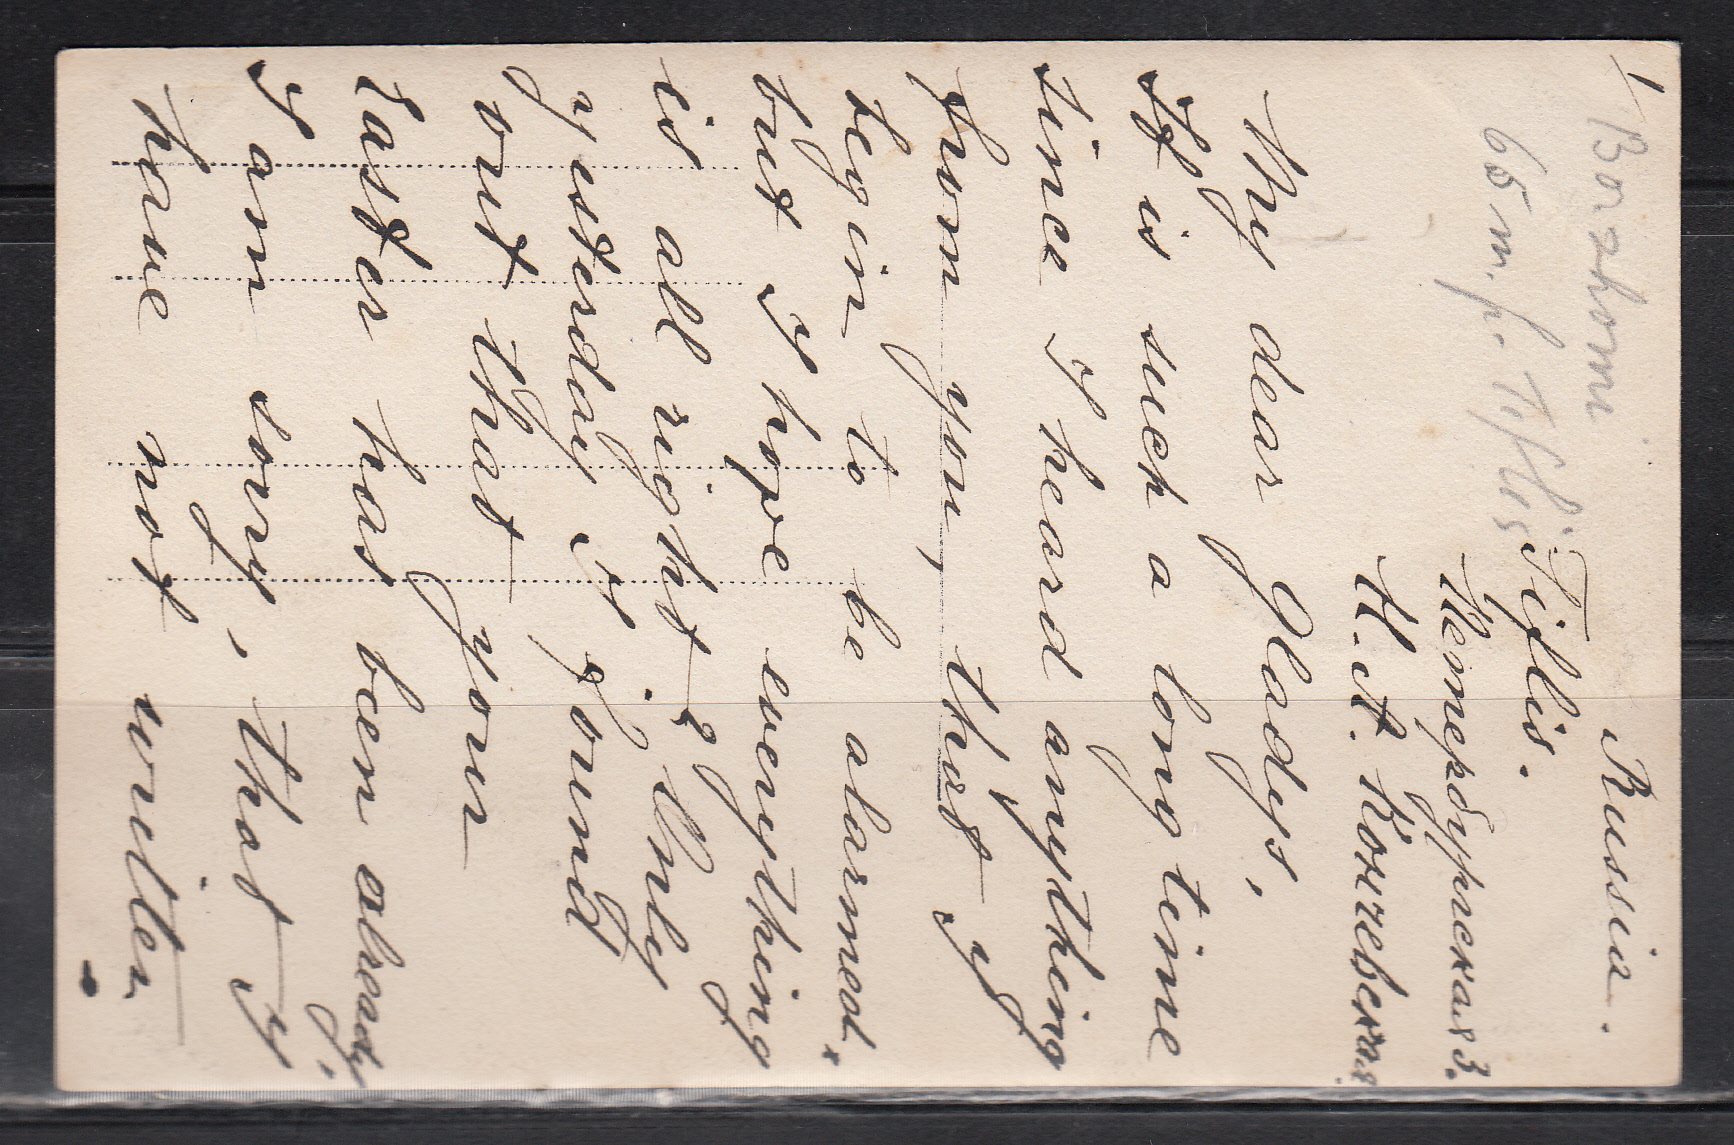 1/
Borzhomi
65 m. fr. Tiflis
Russia.
Tiflis.
Петербургская 3.
Н. А. Козиевская
My dear Gladys,
It is such a long time
since I heard anything
from you, that I
begin to be alarmed,
but I hope everything
is all right? Only
yesterday I found
out that your
Easter has been already,
I am sorry, that I
have not written